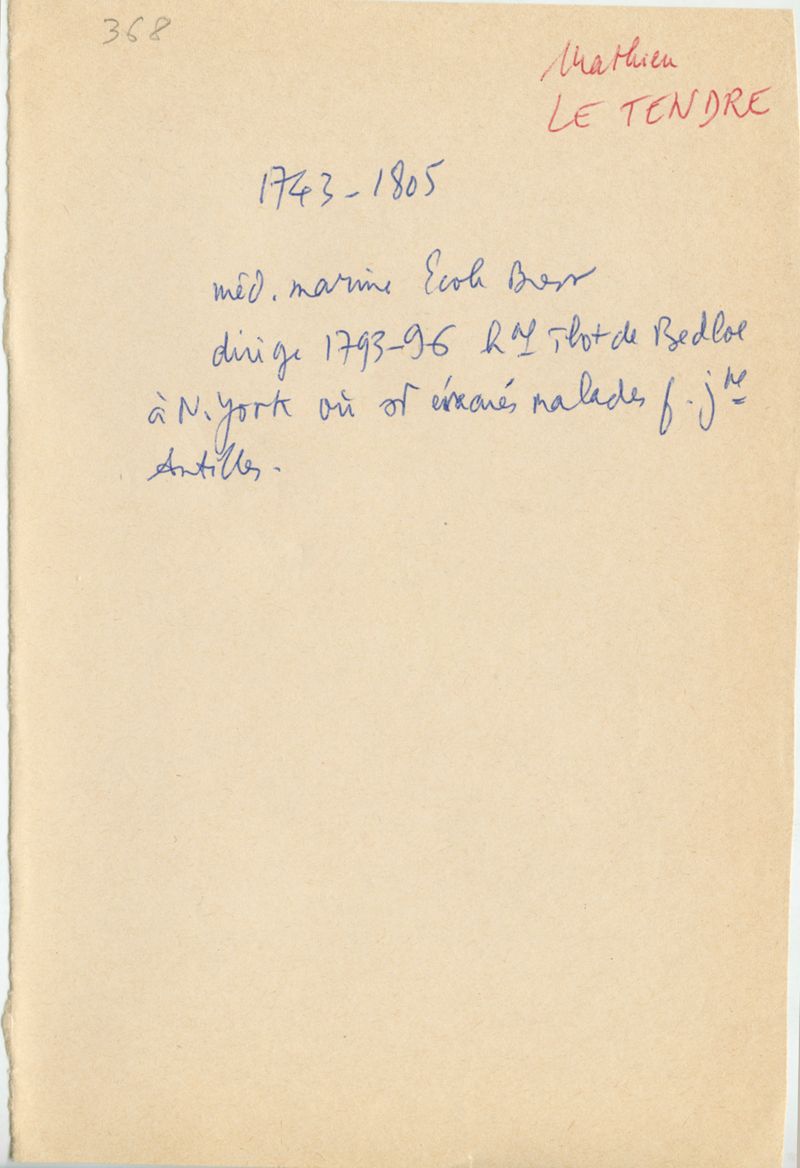 368
Mathieu
LE TENDRE
1743-1805
méd. marine Ecole Brest
dirige 1793-96 hal îlot de Bedloe
à N. York où st évacués malades f. jne
Antilles.